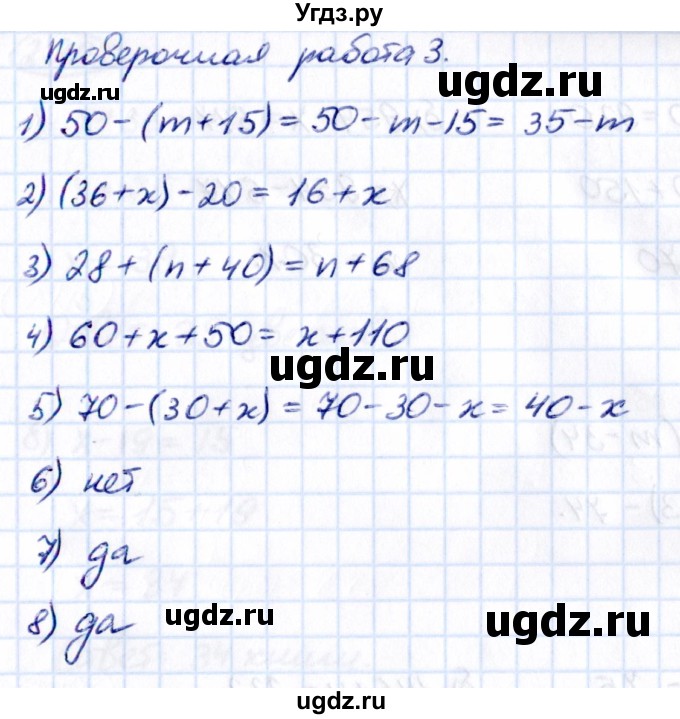 Угдз.ру
Проверочная работа 3.
ugdz.ru
ugdz.ru
1) 50-(m+15)=50-m-15=35-m
2) (36+x)-20=16+x
3) 28+(n+40)=n+68
4) 60+x+50=x+110
ugdz.ru
5) 70-(30+x)=70-30-x=40-x
6) нет
7) да
8) да
ugdz.ru
ugdz.ru
ugdz.ru